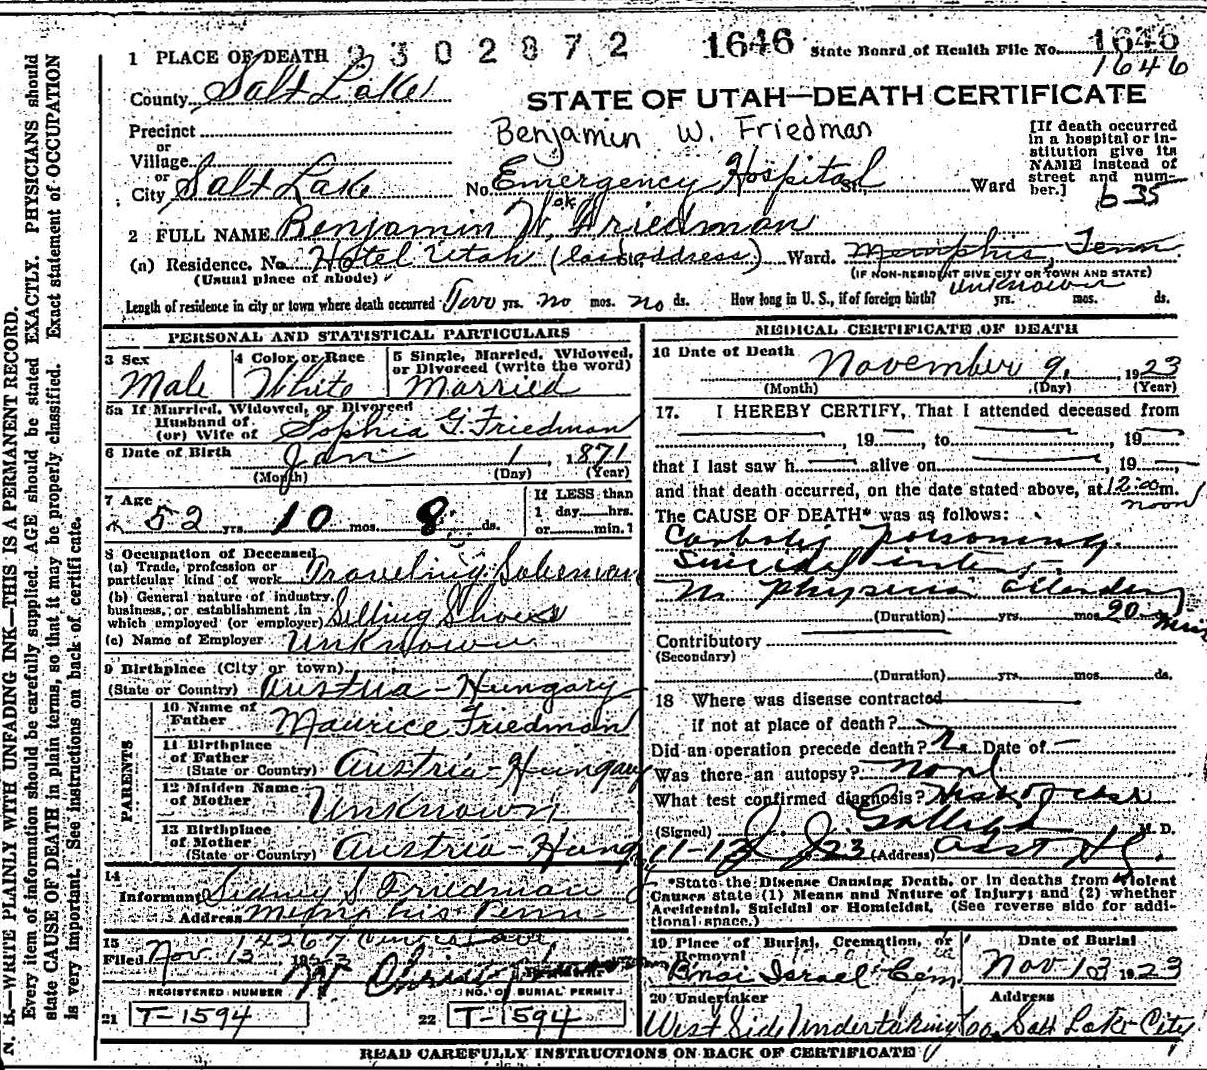 1 PLACE OF DEATH 2302872 1646 State Board of Health File No. 1646
1646
County Salt Lake
STATE OF UTAH—DEATH CERTIFICATE
Precinct
or
Village
or
City Salt Lake No. Emergency Hospital St., Ward
Benjamin W. Friedman
[If death occurred in a hospital or institution give its NAME instead of street and number.]
635
ok
2 FULL NAME Benjamin W. Friedman
(a) Residence. No. Hotel Utah (last address) Ward. Memphis, Tenn
(Usual place of abode)
(IF NON-RESIDENT GIVE CITY OR TOWN AND STATE)
Length of residence in city or town where death occurred yrs. no mos. no ds. How long in U. S., if of foreign birth? unknown yrs. mos. ds.
PERSONAL AND STATISTICAL PARTICULARS
3 Sex
Male
4 Color or Race
White
5 Single, Married, Widowed, or Divorced (write the word)
Married
5a If Married, Widowed, or Divorced
Husband of
(or) Wife of Sophia G. Friedman
6 Date of Birth Jan 1, 1871
(Month) (Day) (Year)
7 Age
52 yrs. 10 mos. 8 ds.
If LESS than
1 day hrs.
or min.?
8 Occupation of Deceased
(a) Trade, profession or
particular kind of work Traveling Salesman
(b) General nature of industry,
business, or establishment in
which employed (or employer) Selling Shoes
(c) Name of Employer Unknown
9 Birthplace (City or town)
(State or Country) Austria-Hungary
PARENTS
10 Name of
Father Maurice Friedman
11 Birthplace
of Father
(State or Country) Austria-Hungary
12 Maiden Name
of Mother Unknown
13 Birthplace
of Mother
(State or Country) Austria-Hung
14
Informant Sidney S Friedman
Address Memphis Tenn
15
Filed Nov 13 1923
REGISTERED NUMBER
21 T-1594
NO. OF BURIAL PERMIT
22 T-1594
MEDICAL CERTIFICATE OF DEATH
16 Date of Death November 9, 1923
(Month) (Day) (Year)
17. I HEREBY CERTIFY, That I attended deceased from
, 19 , to , 19
that I last saw h alive on , 19
and that death occurred, on the date stated above, at 12:00 m.
noon
The CAUSE OF DEATH* was as follows:
Carbolic Poisoning.
Suicidal intent.
No Physician attending
(Duration) yrs. mos. 20 min
Contributory
(Secondary)
(Duration) yrs. mos. ds.
18 Where was disease contracted
if not at place of death?
Did an operation precede death? Date of
Was there an autopsy? None
What test confirmed diagnosis?
(Signed) M. D.
23 (Address)
*State the Disease Causing Death, or in deaths from Violent
Causes state (1) Means and Nature of Injury; and (2) whether
Accidental, Suicidal or Homicidal. (See reverse side for additional space.)
19 Place of Burial, Cremation, or
Removal
Bnai Israel Cem
Date of Burial
Nov 13 1923
20 Undertaker
West Side Undertaking Co.
Address
Salt Lake City
READ CAREFULLY INSTRUCTIONS ON BACK OF CERTIFICATE
N. B.—WRITE PLAINLY WITH UNFADING INK—THIS IS A PERMANENT RECORD.
Every item of information should be carefully supplied. AGE should be stated EXACTLY. PHYSICIANS should
state CAUSE OF DEATH in plain terms, so that it may be properly classified. Exact statement of OCCUPATION
is very important. See instructions on back of certificate.